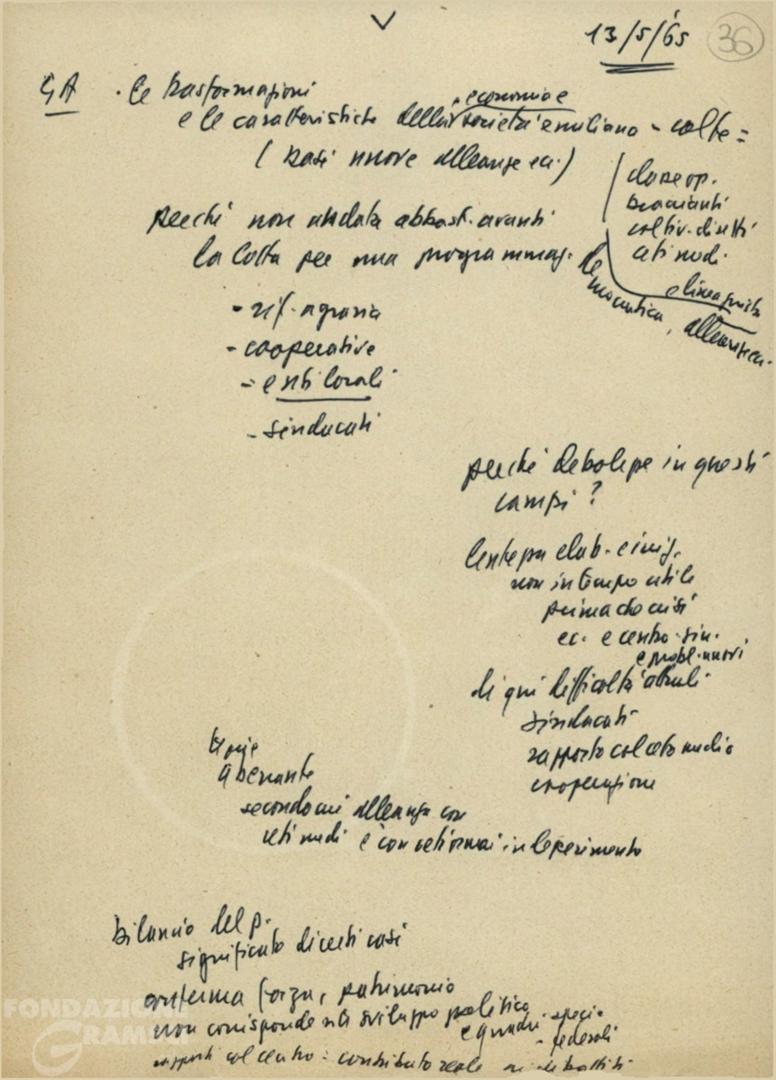 13/5/65
36
GA . le trasformazioni
economia e
e le caratteristiche della società emiliana - colte =
( basi nuove alleanze ec. )
classe op.
braccianti
coltiv. diretti
ceti medi.
e linea giusta
perché non andata abbast. avanti
la lotta per una programmaz. democratica, alleanze ec.
- rif. agraria
- cooperative
- enti locali
- sindacati
perché debolezze in questi
campi ?
lentezza elab. e iniz.
non in tempo utile
prima che crisi
ec. e centro-sin.
e probl. nuovi
di qui difficoltà attuali
sindacati
rapporto col ceto medio
cooperazione
teorie
aberrante
secondo cui alleanza con
ceti medi è con ceti ormai in deperimento
bilancio del p.
significato di certi casi
conferma forza, patrimonio
non corrisponde a sviluppo politico
e quadri. specie
federali
rapporti col centro : contributo reale ai dibattiti
FONDAZIONE
GRAMSCI